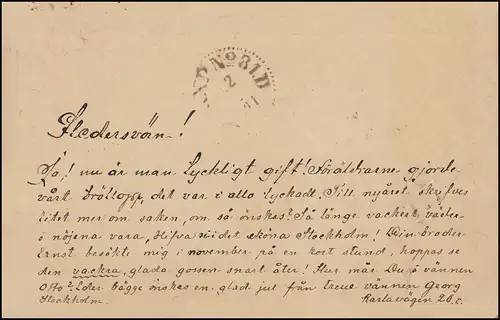 PXP No 81D
2
Hedersvän!
Ja, nu är man lyckligt gift! Föräldrarne gjorde
vårt bröllopp, det var i allo lyckadt. Till nyåret skrifves
litet mer om saken, om så önskes? Så länge vackert väder
i nöjena vara, i det sköna Stockholm! Din broder
Ernst besökte mig i november på en kort stund, hoppas se
den vackra, glada gossen snart åter! Hur mås Du, o vännen
Otto? Eder bägge önskes en glad jul från Eder vännen Georg
Stockholm. Karlavägen 20.c.